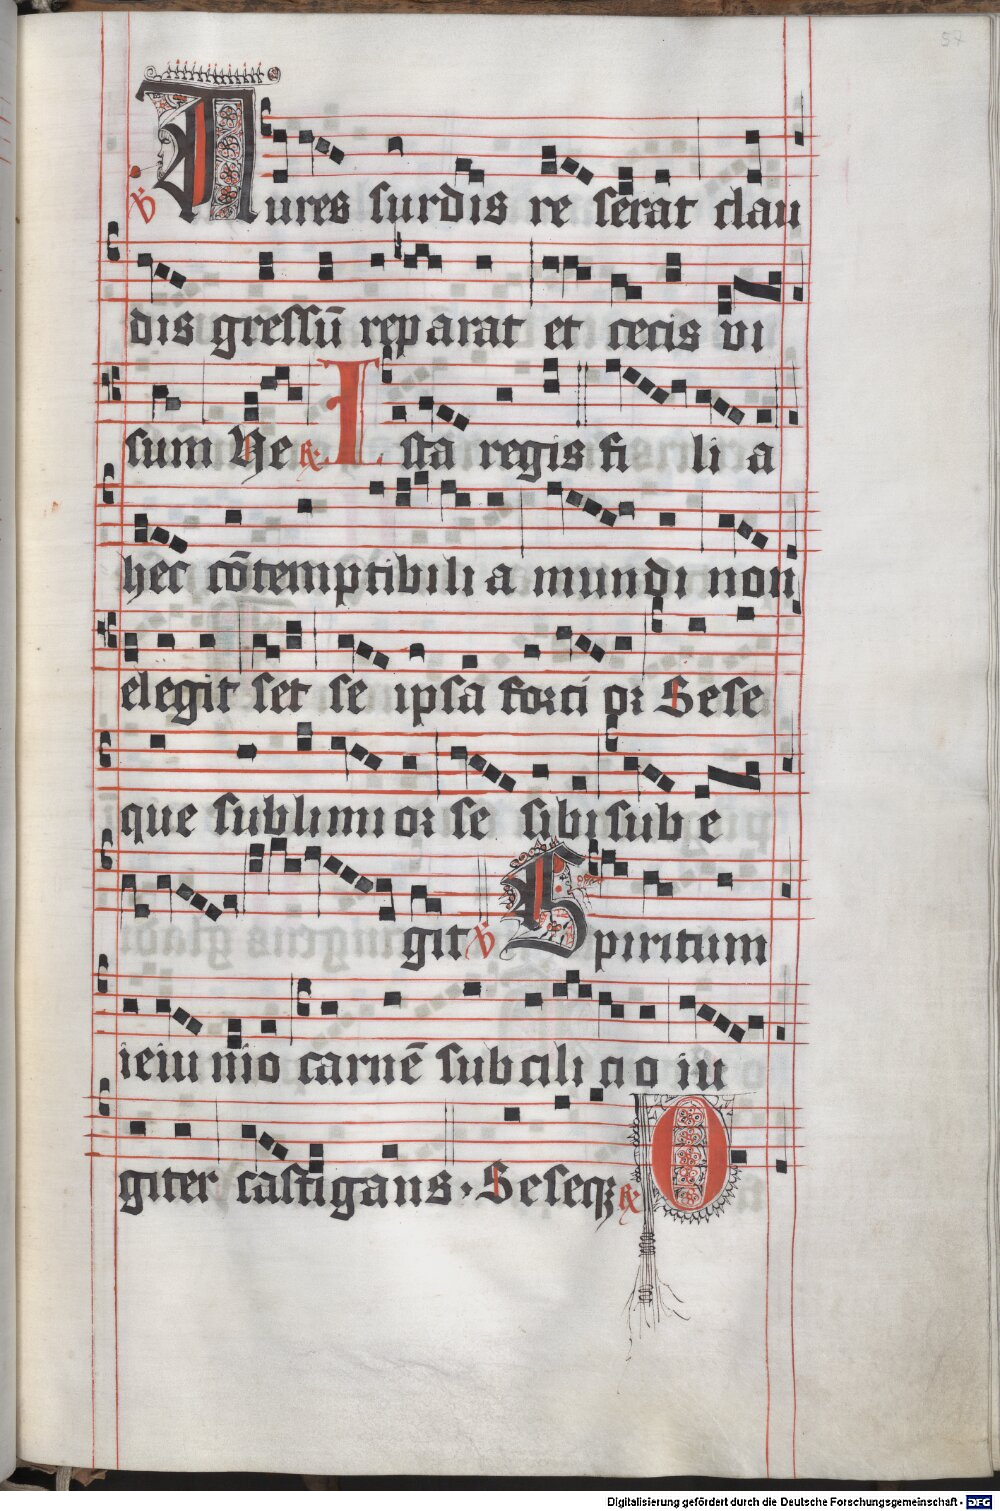 57
℣ Aures surdis re serat clau
dis gressū reparat et cecis vi
sum Ne ℟ Ista regis fi li a
hec cōtemptibili a mundi non
elegit set se ipsa forti or Sese
que sublimi or se sibi sub e
git ℣ Spiritum
ieiu nio carnē sub cili ci o iu
giter castigans. Seseqꝫ ℟ O
Digitalisierung gefördert durch die Deutsche Forschungsgemeinschaft - DFG